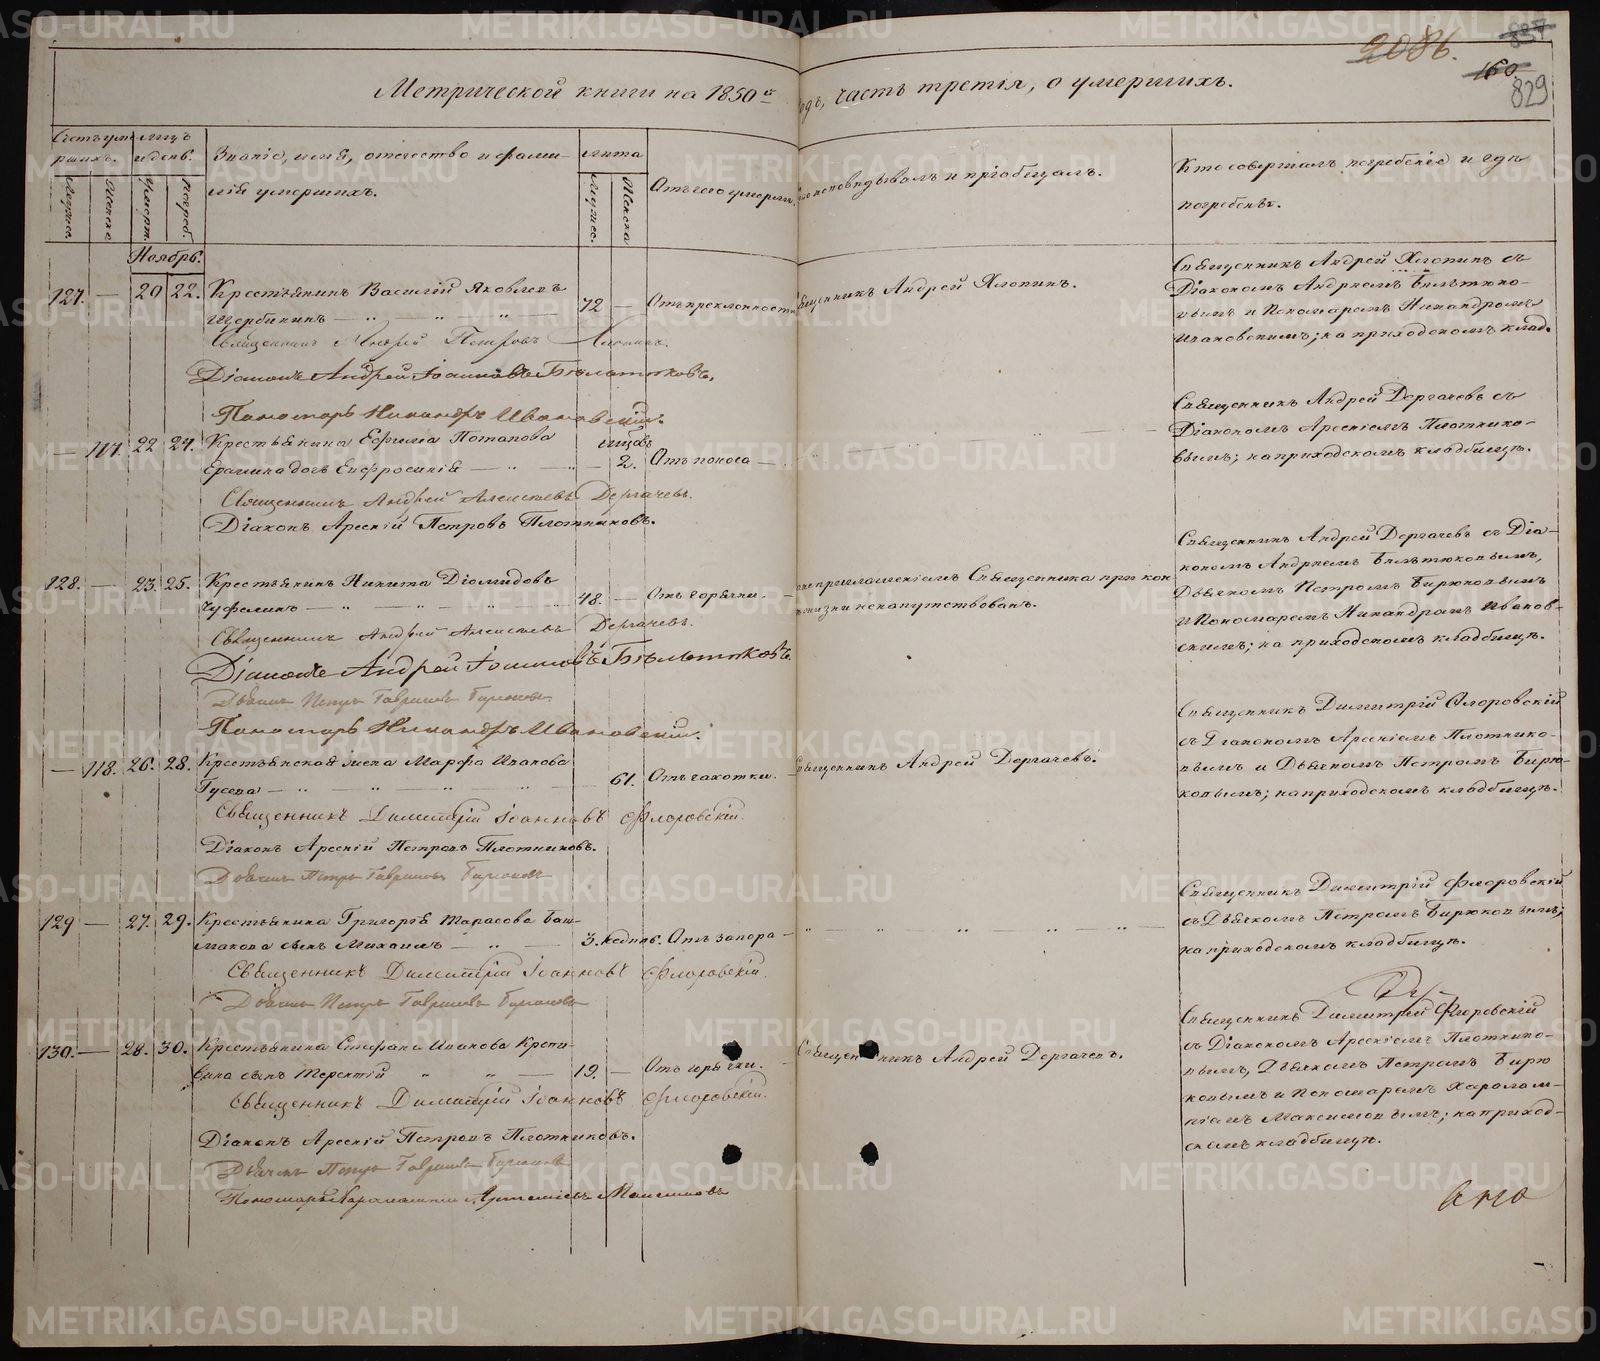 2086.
837
160
829
Метрической книги на 1850й годъ, часть третія, о умершихъ.
Счетъ умершихъ.
Мужес.
Женска
Мцъ и день.
Умерт.
Погреб.
Званіе, имя, отечество и фамилія умершихъ.
Лѣта
Мужес.
Женска
Отъ чего умерли.
Кто исповѣдывалъ и пріобщалъ.
Кто совершалъ погребеніе и гдѣ
погребенъ.
Ноябрь.
127. — 20 22. Крестьянинъ Василій Яковлевъ
Щербининъ — 72 — Отъ преклонности Священникъ Андрей Хлопинъ.
Священникъ Андрей Хлопинъ съ
Діакономъ Андреемъ Бѣльтюко-
вымъ и Пономаремъ Никандромъ
Ивановскимъ; на приходскомъ клад.
Священникъ Андрей Петровъ Хлопинъ.
Діаконъ Андрей Іоанновъ Бѣльтюковъ.
Пономарь Никандръ Ивановскій.
— 117. 22 24. Крестьянина Ефима Потапова
дочь Евфросинія — мцовъ 2. Отъ поноса —
Священникъ Андрей Дергачевъ съ
Діакономъ Арсеніемъ Плотнико-
вымъ; на приходскомъ кладбищѣ.
Священникъ Андрей Алексѣевъ Дергачевъ.
Діаконъ Арсеній Петровъ Плотниковъ.
128. — 23. 25. Крестьянинъ Никита Діомидовъ
Чуфелинъ — 48. — Отъ горячки. —
приглашеніемъ Священника при кон
жизни ненапутствованъ.
Священникъ Андрей Дергачевъ съ Діа-
кономъ Андреемъ Бѣльтюковымъ,
Дьячкомъ Петромъ Бирюковымъ
и Пономаремъ Никандромъ Иванов-
скимъ; на приходскомъ кладбищѣ.
Священникъ Андрей Алексѣевъ Дергачевъ.
Діаконъ Андрей Іоанновъ Бѣльтюковъ.
Дьячекъ Петръ Гавриловъ Бирюковъ.
Пономарь Никандръ Ивановскій.
— 118. 26. 28. Крестьянская жена Марфа Иванова
Гусева — 61. Отъ чахотки. — Священникъ Андрей Дергачевъ.
Священникъ Димитрій Флоровскій
съ Діакономъ Арсеніемъ Плотнико-
вымъ и Дьячкомъ Петромъ Бирю-
ковымъ; на приходскомъ кладбищѣ.
Священникъ Димитрій Іоанновъ Флоровскій.
Діаконъ Арсеній Петровъ Плотниковъ.
Дьячекъ Петръ Гавриловъ Бирюковъ
129 — 27. 29. Крестьянина Григорія Тарасова Баш-
макова сынъ Михаилъ — 3. недѣль. Отъ запора —
Священникъ Димитрій Флоровскій
съ Дьячкомъ Петромъ Бирюковымъ;
на приходскомъ кладбищѣ.
Священникъ Димитрій Іоанновъ Флоровскій.
Дьячекъ Петръ Гавриловъ Бирюковъ
130. — 28. 30. Крестьянина Стефана Иванова
сынъ Терентій — 19. — Отъ горячки. — Священникъ Андрей Дергачевъ.
Священникъ Димитрій Флоровскій
съ Діакономъ Арсеніемъ Плотнико-
вымъ, Дьячкомъ Петромъ Бирю
ковымъ и Пономаремъ Харолам-
піемъ Максимовымъ; на приход-
скомъ кладбищѣ.
Священникъ Димитрій Іоанновъ Флоровскій.
Діаконъ Арсеній Петровъ Плотниковъ.
Дьячекъ Петръ Гавриловъ Бирюковъ
Пономарь Харалампій Артемьевъ Максимовъ
METRIKI.GASO-URAL.RU